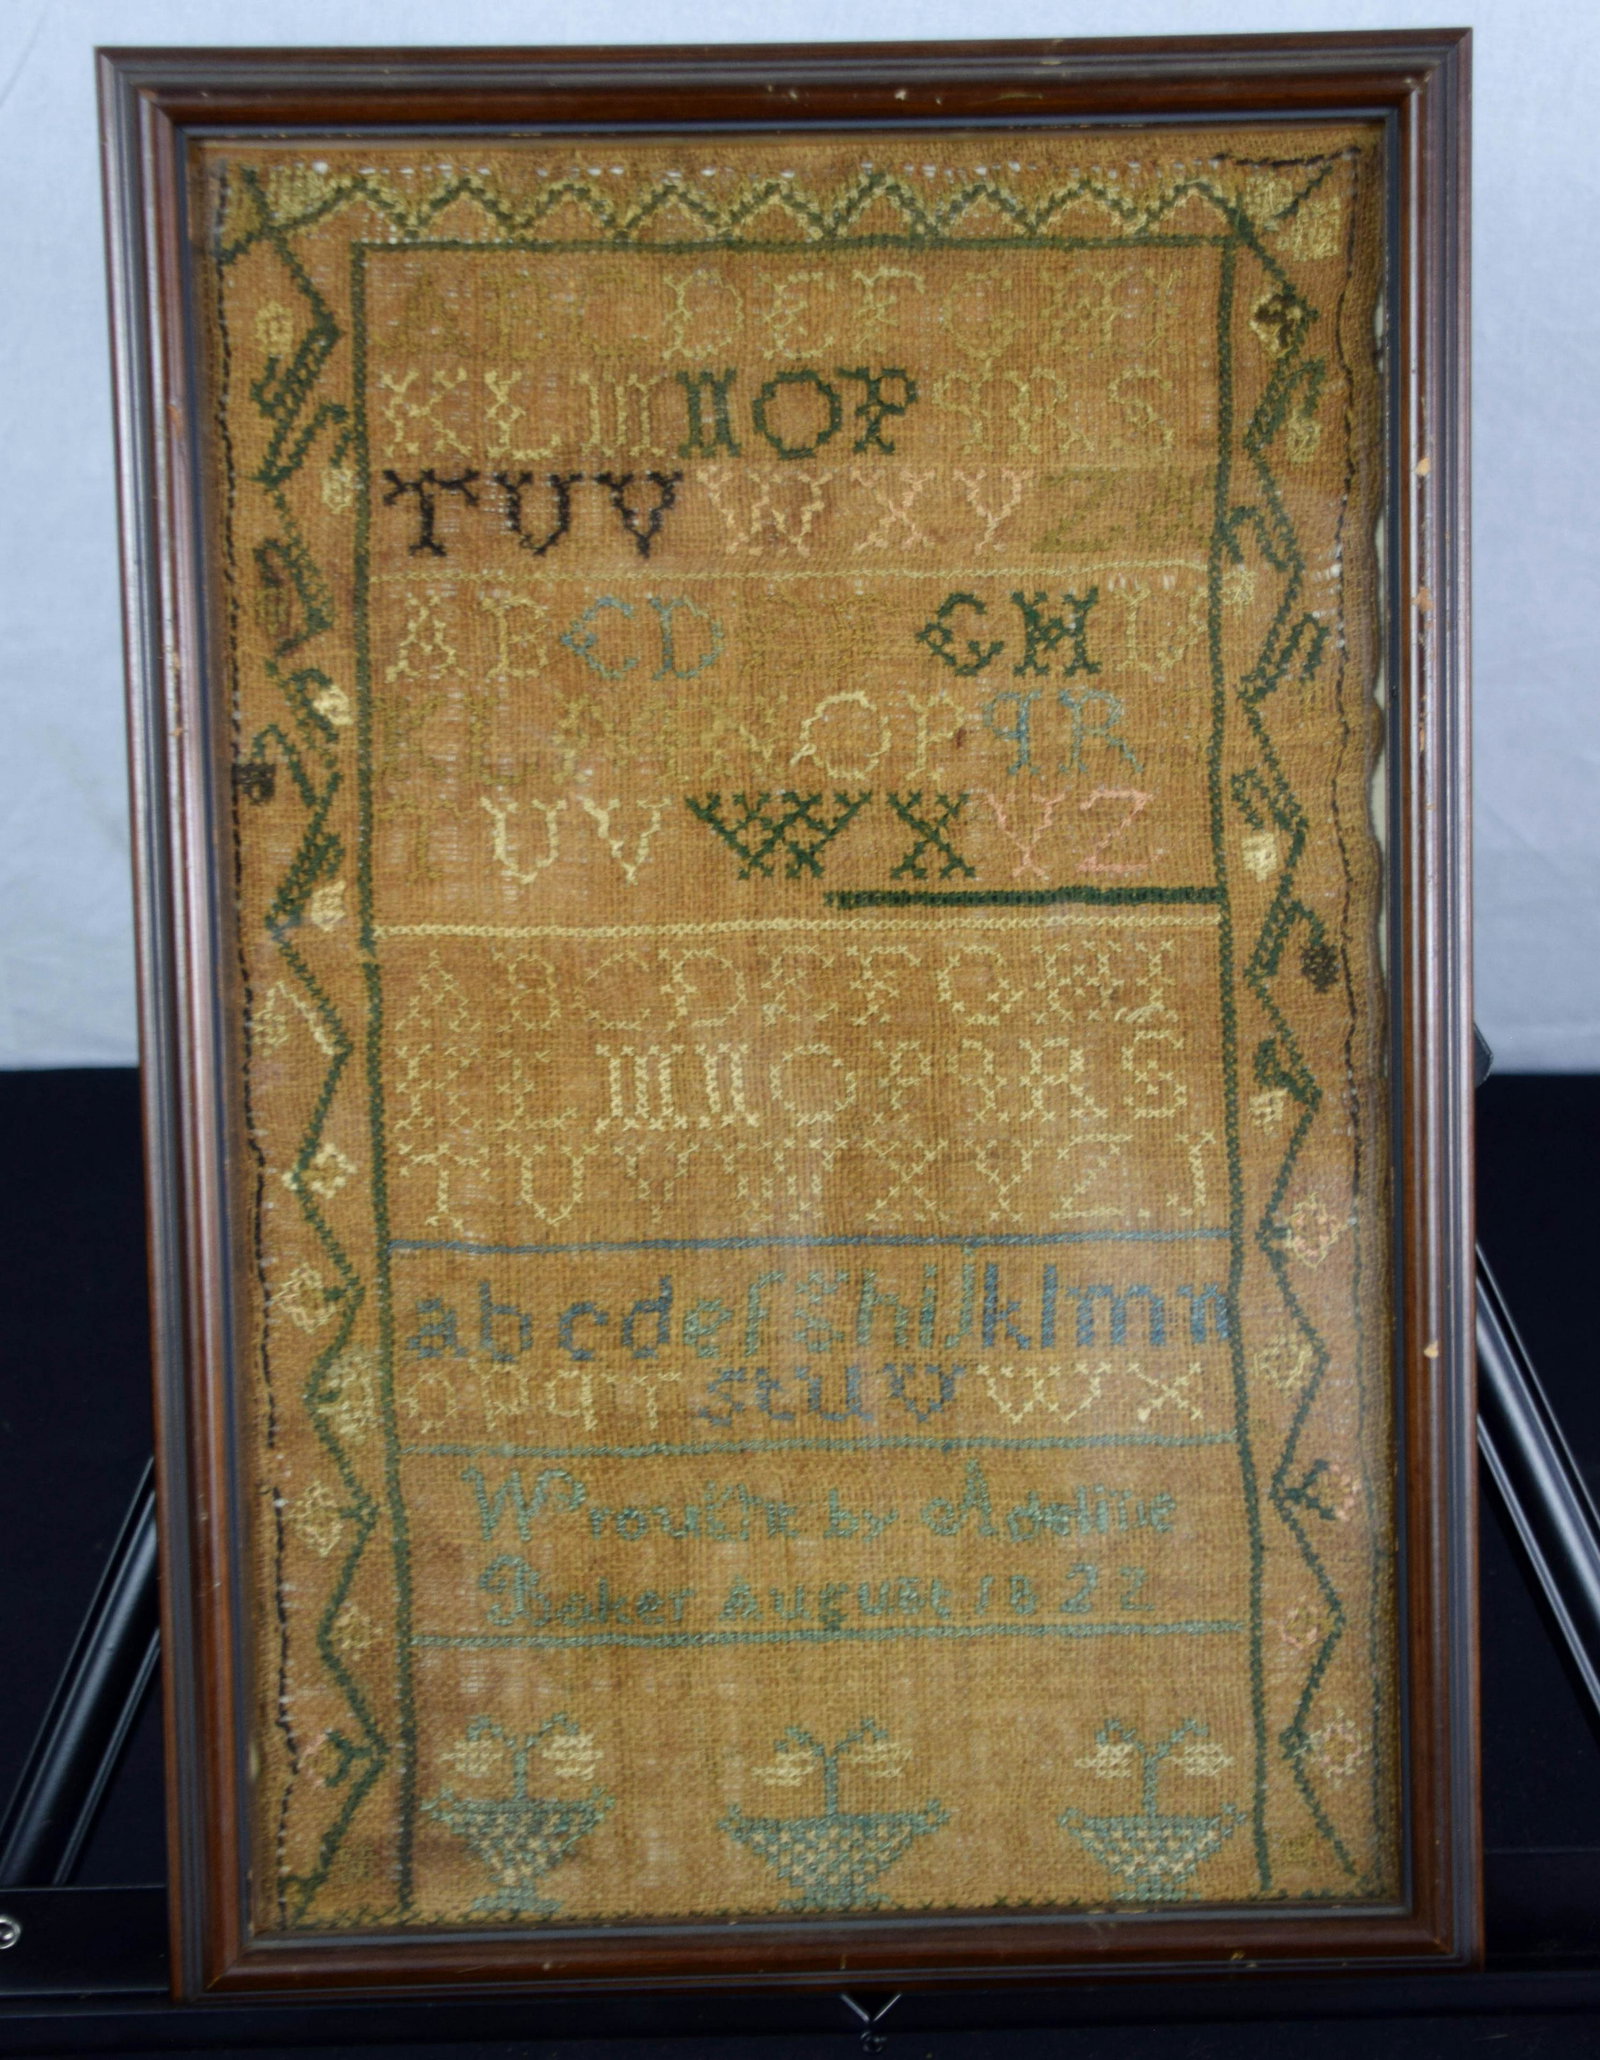 A B C D E F G H I
K L M N O P Q R S
T U V W X Y Z
A B C D E F G H I
K L M N O P Q R
T U V W X Y Z
A B C D E F G H I
K L M N O P Q R S
T U V W X Y Z . J
a b c d e f g h i j k l m n
o p q r s t u v w x
Wrought by Adeline
Baker August 1822